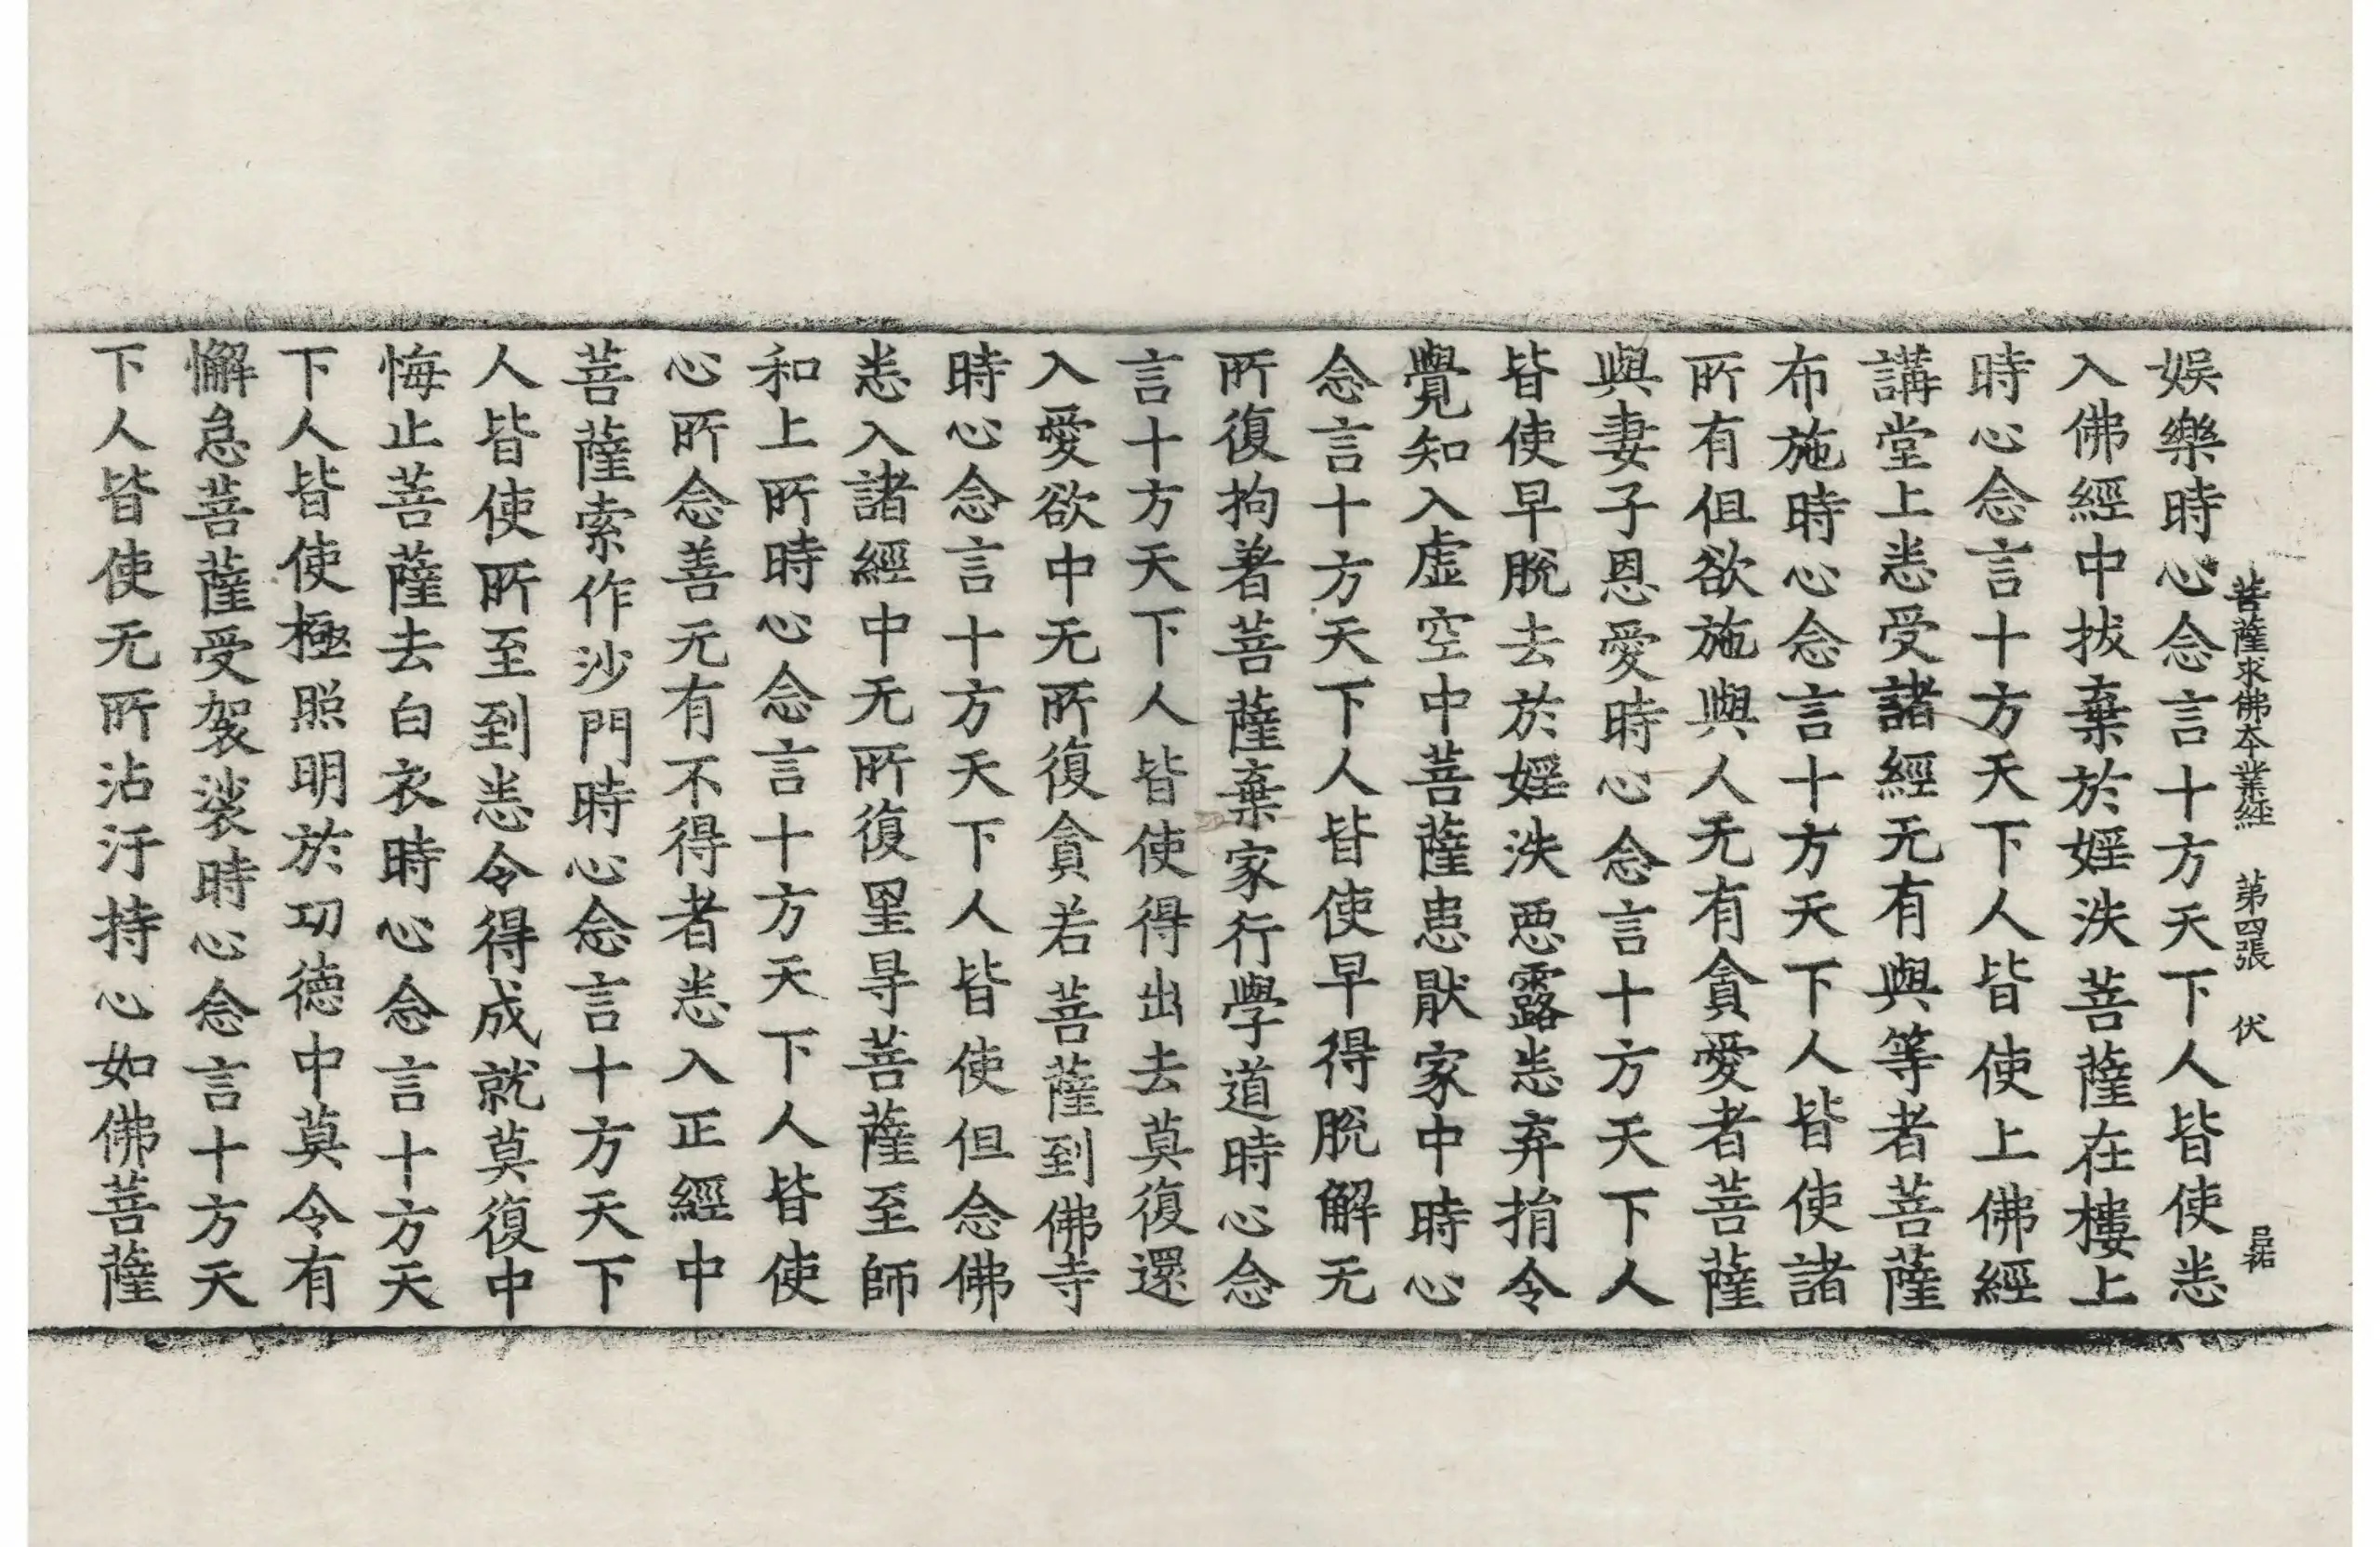 菩薩求佛本業經 第四張 伏
娯樂時心念言十方天下人皆使悉
入佛經中拔棄於婬泆菩薩在樓上
時心念言十方天下人皆使上佛經
講堂上悉受諸經无有與等者菩薩
布施時心念言十方天下人皆使諸
所有但欲施與人无有貪愛者菩薩
與妻子恩愛時心念言十方天下人
皆使早脫去於婬泆惡露悉弃捐令
覺知入虛空中菩薩患猒家中時心
念言十方天下人皆使早得脫解无
所復拘著菩薩棄家行學道時心念
言十方天下人皆使得出去莫復還
入愛欲中无所復貪若菩薩到佛寺
時心念言十方天下人皆使但念佛
悉入諸經中无所復罣㝵菩薩至師
和上所時心念言十方天下人皆使
心所念善无有不得者悉入正經中
菩薩索作沙門時心念言十方天下
人皆使所至到悉令得成就莫復中
悔止菩薩去白衣時心念言十方天
下人皆使極照明於功德中莫令有
懈怠菩薩受袈裟時心念言十方天
下人皆使无所沾汙持心如佛菩薩